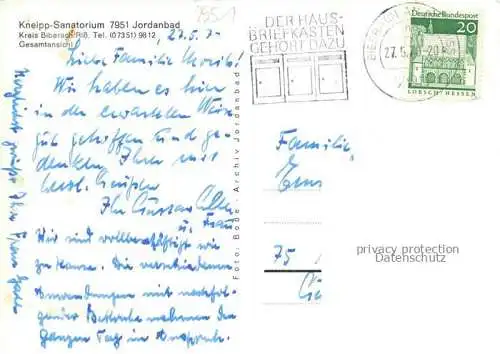 7951
Kneipp-Sanatorium 7951 Jordanbad
Kreis Biberach (Riß). Tel. (07351) 9812
Gesamtansicht
27.5.7
Liebe Familie
Wir haben es hier
in der erwarteten Weise
gut getroffen und ge-
denken Ihrer mit
herzl. Grüßen
Ihr Gustav
u. Frau
Wir sind vollbeschäftigt wie
zu Hause. Die verschiedenen
Anwendungen mit nachfol-
gender Bettruhe nehmen den
ganzen Tag in Anspruch.
Herzlichst grüßt Ihre Frau
Foto: Bode - Archiv Jordanbad
DER HAUS-
BRIEFKASTEN
GEHÖRT DAZU
27.5.7 -20
Deutsche Bundespost
20
LORSCH/HESSEN
Familie
75
privacy protection
Datenschutz